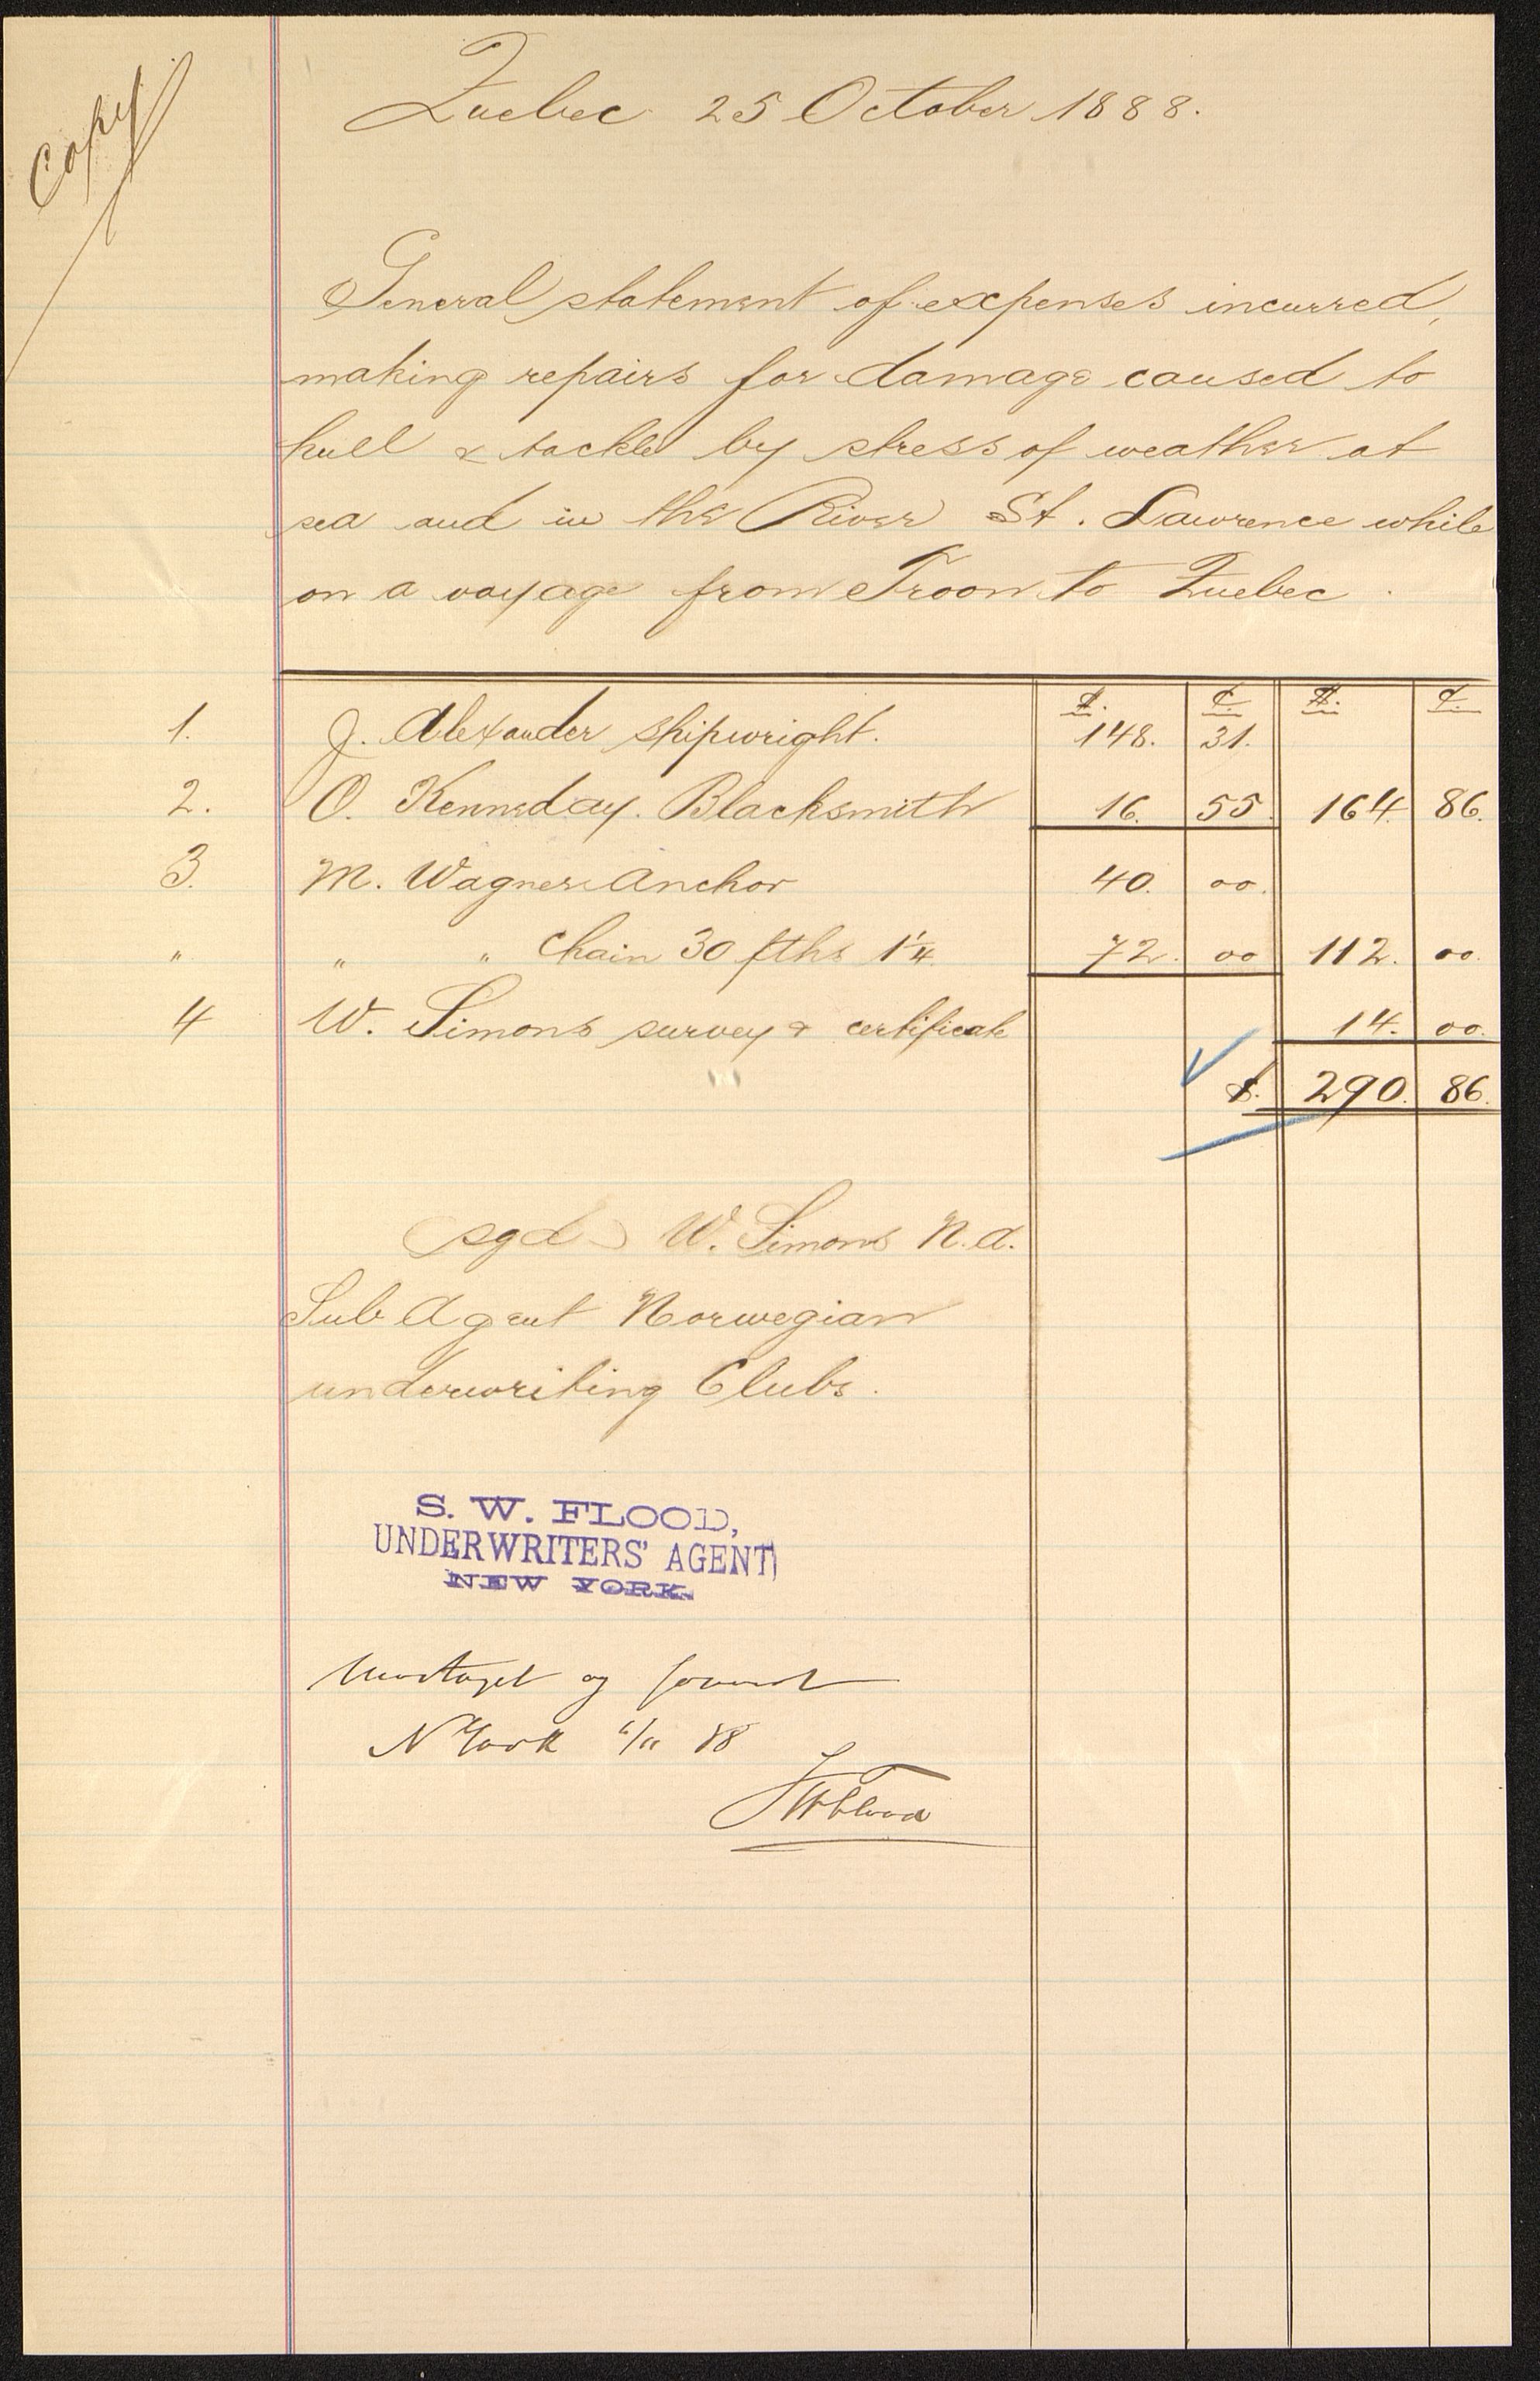 Copy
Quebec 25 October 1888.
General statement of expenses incurred,
making repairs for damage caused to
hull & tackle by stress of weather at
sea and in the River St. Lawrence while
on a voyage from Troon to Quebec.
$. C. $. C.
1. J. Alexander shipwright. 148. 31.
2. O. Kenneday. Blacksmith 16. 55 164. 86.
3. M. Wagner Anchor 40. 00.
" " " Chain 30 fths 1 1/4 72. 00 112. 00.
4 W. Simons survey & certificate 14. 00.
$. 290. 86.
(sgd) W. Simons N.A.
Sub Agent Norwegian
underwriting Clubs.
S. W. FLOOD,
UNDERWRITERS' AGENT
NEW YORK.
og
N York 88
SWFlood